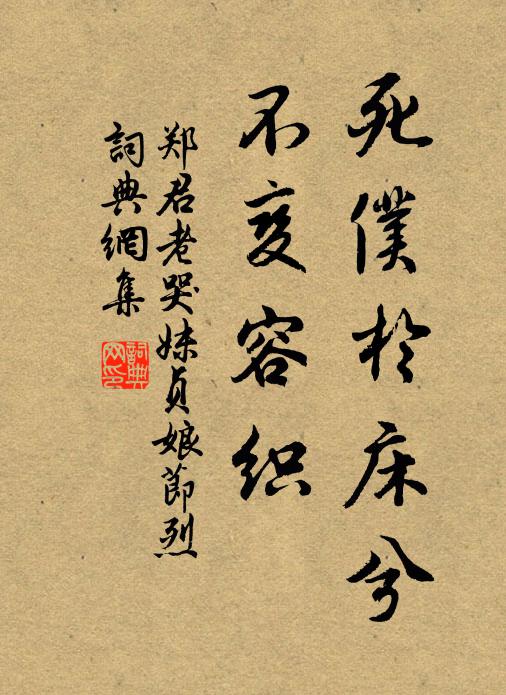 死僕於床兮
不变容织
郑君老哭妹贞娘節烈
詞典網集
詞典
网印